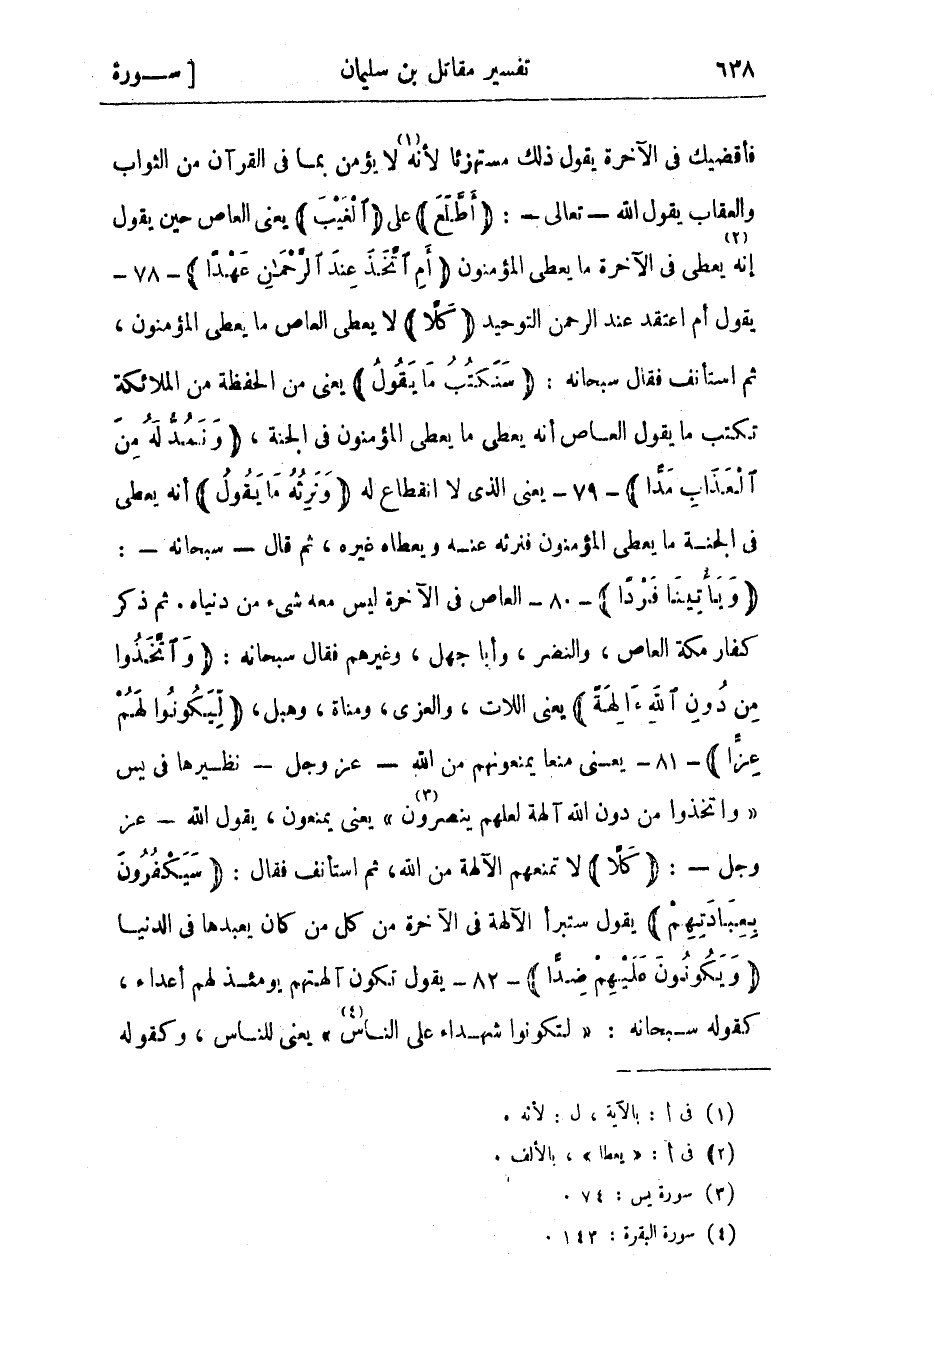 ٦٣٨ تفسير مقاتل بن سليمان [ ســورة
فأقضيك فى الآخرة يقول ذلك مستهزئا لأنه (١) لا يؤمن بمـا فى القرآن من الثواب
والعقاب يقول الله — تعالى — : ﴿ أَطَّلَعَ ﴾ على ﴿ ٱلْغَيْبَ ﴾ يعنى العاص حين يقول
إنه يعطى (٢) فى الآخرة ما يعطى المؤمنون ﴿ أَمِ ٱتَّخَذَ عِندَ ٱلرَّحْمَٰنِ عَهْدًا ﴾ - ٧٨ -
يقول أم اعتقد عند الرحمن التوحيد ﴿ كَلَّا ﴾ لا يعطى العاص ما يعطى المؤمنون ،
ثم استأنف فقال سبحانه : ﴿ سَنَكْتُبُ مَا يَقُولُ ﴾ يعنى من الحفظة من الملائكة
تكتب ما يقول العـاص أنه يعطى ما يعطى المؤمنون فى الجنة ، ﴿ وَنَمُدُّ لَهُ مِنَ
ٱلْعَذَابِ مَدًّا ﴾ - ٧٩ - يعنى الذى لا انقطاع له ﴿ وَنَرِثُهُ مَا يَقُولُ ﴾ أنه يعطى
فى الجنـة ما يعطى المؤمنون فنرثه عنـه ويعطاه غيره ، ثم قال — سبحانه — :
﴿ وَيَأْتِينَا فَرْدًا ﴾ - ٨٠ - العاص فى الآخرة ليس معه شىء من دنياه . ثم ذكر
كفار مكة العاص ، والنضر ، وأبا جهل ، وغيرهم فقال سبحانه : ﴿ وَٱتَّخَذُوا
مِن دُونِ ٱللَّهِ ءَالِهَةً ﴾ يعنى اللات ، والعزى ، ومناة ، وهبل ، ﴿ لِّيَكُونُوا لَهُمْ
عِزًّا ﴾ - ٨١ - يعـنى منعا يمنعونهم من الله — عز وجل — نظـيرها فى يس
« واتخذوا من دون الله آلهة لعلهم ينصرون (٣) » يعنى يمنعون ، يقول الله — عز
وجل — : ﴿ كَلَّا ﴾ لا تمنعهم الآلهة من الله ، ثم استأنف فقال : ﴿ سَيَكْفُرُونَ
بِعِبَادَتِهِمْ ﴾ يقول ستبرأ الآلهة فى الآخرة من كل من كان يعبدها فى الدنيـا
﴿ وَيَكُونُونَ عَلَيْهِمْ ضِدًّا ﴾ - ٨٢ - يقول تكون آلهتهم يومئـذ لهم أعداء ،
كقوله سـبحانه : « لتكونوا شهـداء على النـاس (٤) » يعنى للنـاس ، وكقوله
(١) فى أ : بالآية ، ل : لأنه .
(٢) فى أ : « يعطا » ، بالألف .
(٣) سورة يس : ٧٤ .
(٤) سورة البقرة : ١٤٣ .